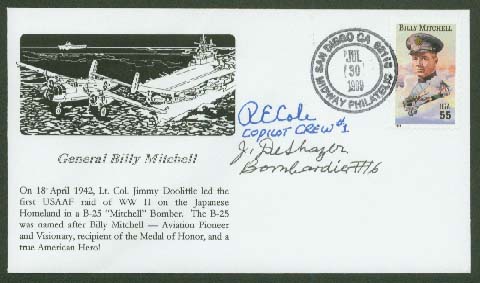 General Billy Mitchell
On 18 April 1942, Lt. Col. Jimmy Doolittle led the
first USAAF raid of WW II on the Japanese
Homeland in a B-25 "Mitchell" Bomber. The B-25
was named after Billy Mitchell — Aviation Pioneer
and Visionary, recipient of the Medal of Honor, and a
true American Hero!
SAN DIEGO CA
MIDWAY PHILATELIC
30
1999
BILLY MITCHELL
USA
55
R E Cole
COPILOT CREW #1
J. DeShazer
Bombardier #16